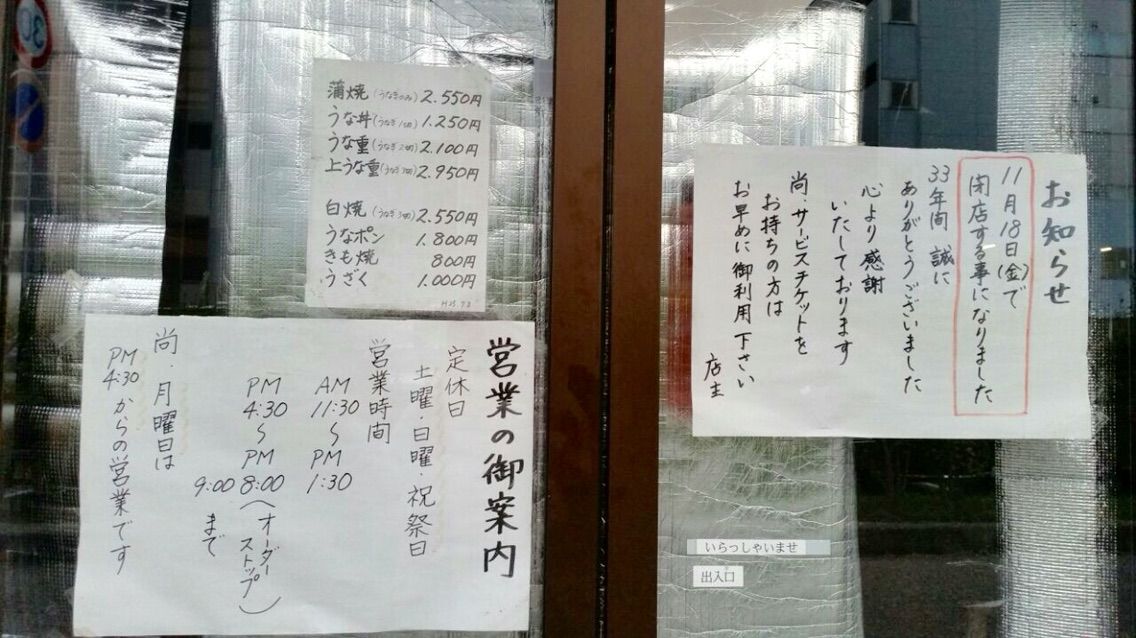 蒲焼(うなぎのみ)2.550円
うな丼(うなぎ1切)1.250円
うな重(うなぎ2切)2.100円
上うな重(うなぎ3切)2.950円
白焼(うなぎ3切)2.550円
うなポン 1.800円
きも焼 800円
うざく 1.000円
営業の御案内
定休日
土曜・日曜・祝祭日
営業時間
AM 11:30〜PM 1:30
PM 4:30〜PM 8:00(オーダーストップ)
9:00まで
尚・月曜日は
PM 4:30からの営業です
お知らせ
11月18日(金)で
閉店する事になりました
33年間 誠に
ありがとうございました
心より感謝
いたしております
尚、サービスチケットを
お持ちの方は
お早めに御利用下さい
店主
いらっしゃいませ
出入口
30